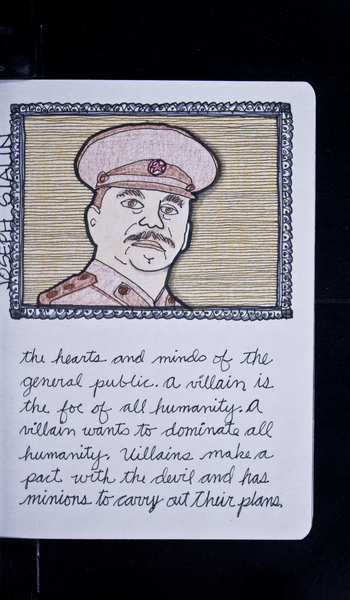 JOSEPH STALIN
the hearts and minds of the
general public. a villain is
the foe of all humanity. A
villain wants to dominate all
humanity. Villains make a
pact with the devil and has
minions to carry out their plans.